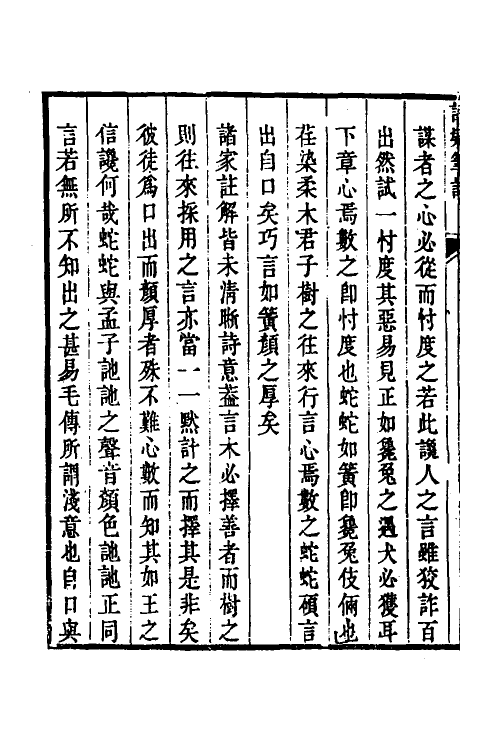 謀者之心必從而忖度之若此讒人之言雖狡詐百
出然試一忖度其惡易見正如毚兔之遇犬必獲耳
下章心焉數之卽忖度也蛇蛇如簧卽毚兔伎倆也
荏染柔木君子樹之往來行言心焉數之蛇蛇碩言
出自口矣巧言如簧顏之厚矣
諸家註解皆未淸晰詩意葢言木必擇善者而樹之
則往來採用之言亦當一一默計之而擇其是非矣
彼徒爲口出而顏厚者殊不難心數而知其如王之
信讒何哉蛇蛇與孟子訑訑之聲音顏色訑訑正同
言若無所不知出之甚易毛傳所謂淺意也自口與